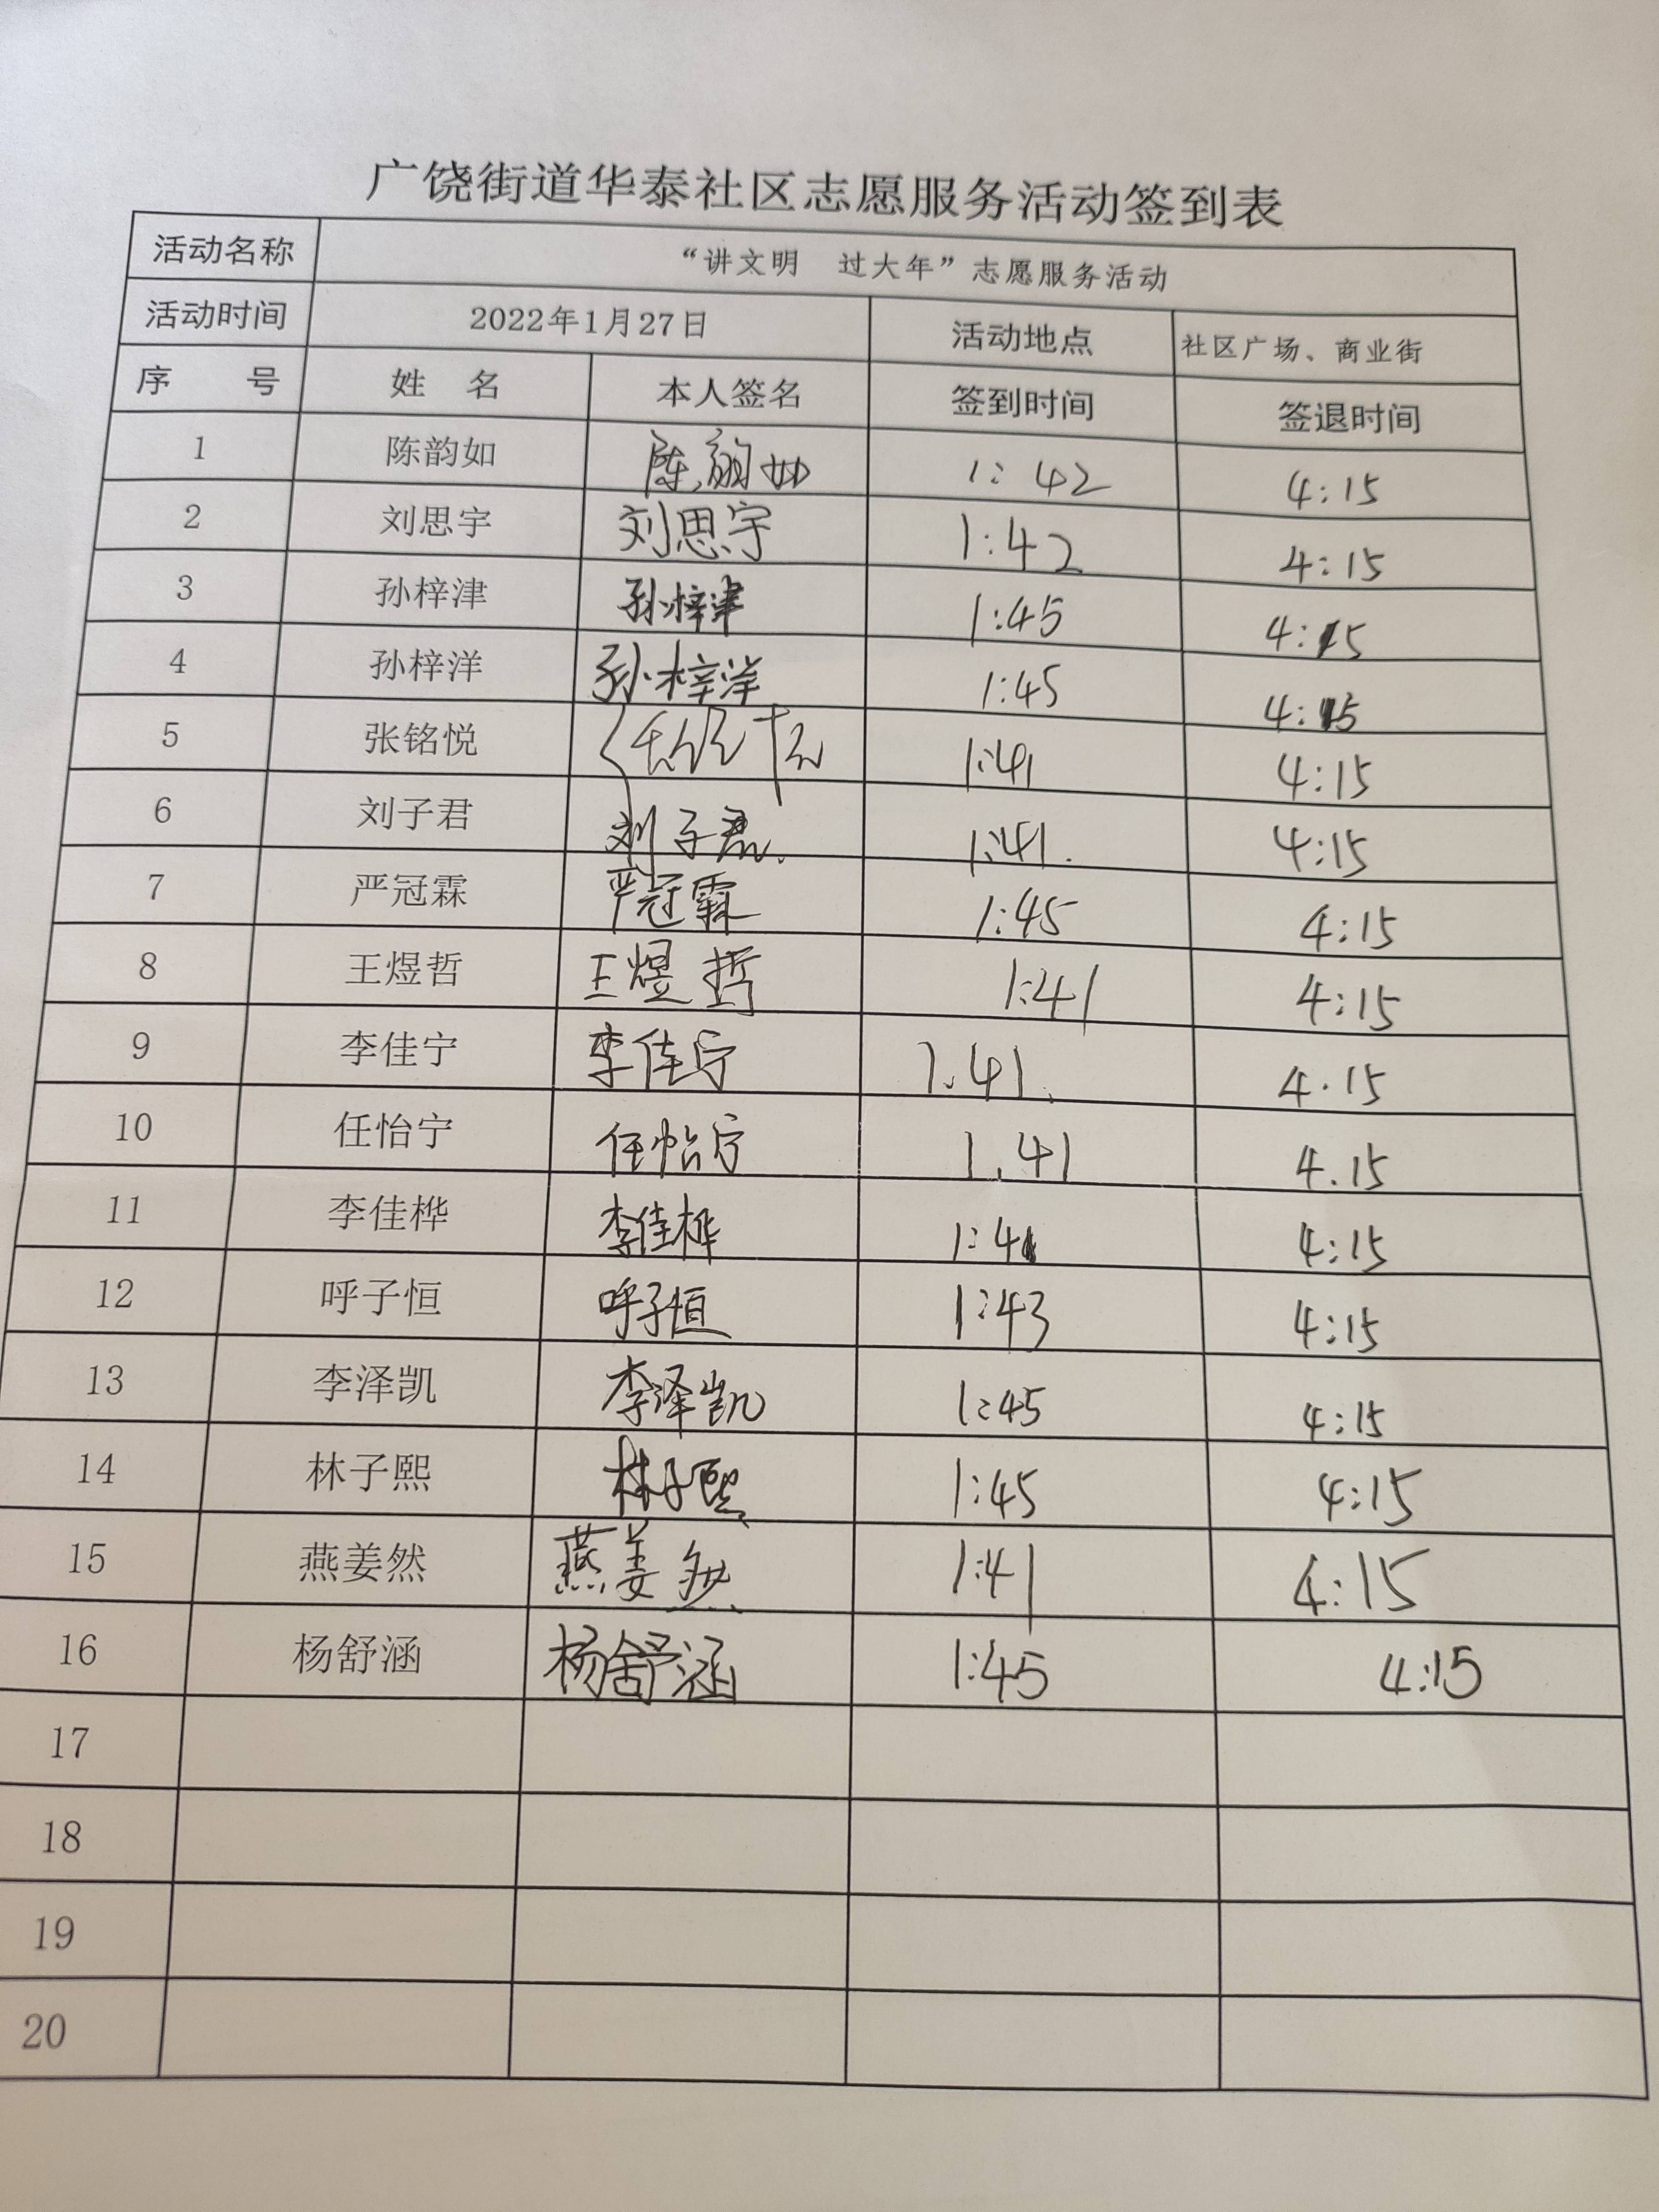 广饶街道华泰社区志愿服务活动签到表
活动名称 “讲文明 过大年”志愿服务活动
活动时间 2022年1月27日 活动地点 社区广场、商业街
序 号 姓 名 本人签名 签到时间 签退时间
1 陈韵如 陈韵如 1:42 4:15
2 刘思宇 刘思宇 1:42 4:15
3 孙梓津 孙梓津 1:45 4:15
4 孙梓洋 孙梓洋 1:45 4:15
5 张铭悦 1:41 4:15
6 刘子君 刘子君. 1:41. 4:15
7 严冠霖 严冠霖 1:45 4:15
8 王煜哲 王煜哲 1:41 4:15
9 李佳宁 李佳宁 1.41. 4.15
10 任怡宁 任怡宁 1.41 4.15
11 李佳桦 李佳桦 1:41 4:15
12 呼子恒 呼子恒 1:43 4:15
13 李泽凯 李泽凯 1:45 4:15
14 林子熙 林子熙 1:45 4:15
15 燕姜然 燕姜然 1:41 4:15
16 杨舒涵 杨舒涵 1:45 4:15
17
18
19
20